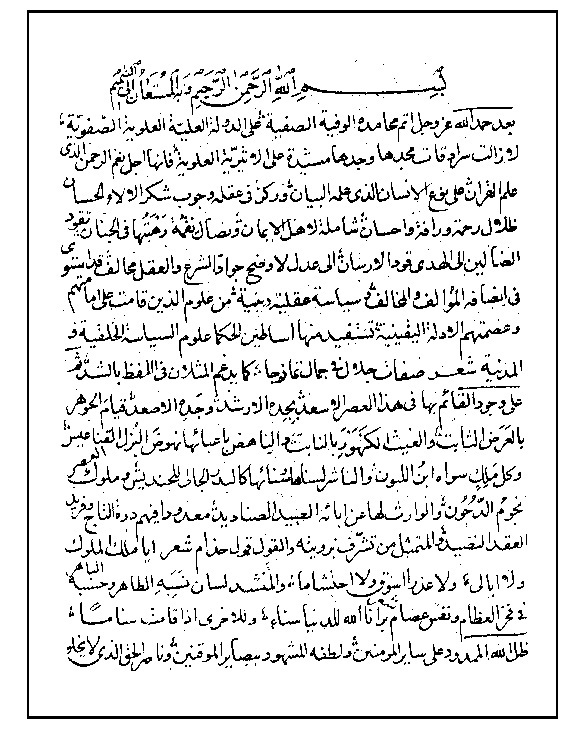 بسم الله الرحمن الرحيم وبه المستعان
بعد حمد الله عز وجل اتم محامده الوفية الصفية على الدولة العلية العلوية الصفوية
لا زالت مجدها وجدها مستندة على العلوية فانها اجل نعم الرحمن الذى
علم القرآن على نوع الانسان الذى علمه البيان وركز فى عقله وجوب شكر الالاء الحسان
ظلال رحمة ورافة واحسان شاملة لاهل الايمان ونصال نقمة
الضالين الى الهدى قود الارسان الى عدل لاوضح جواد الشرع والعقل مخالف قد استوى
فى انصافه المؤالف والمخالف وسياسة عقلية دينية من علوم الذين قامت على امامتهم
وعصمتهم الادلة اليقينية تستفيد منها اساطين الحكما علوم السياسة الخلقية و
المدنية شعر صفات جلال فى جمال تمازجا كما يدغم المثلان فى اللفظ بالشد
على وجود القائم بها فى هذا العصر الاسعد بجده الارشد وجده الاصعد قيام الجوهر
بالعرض الثابت والغيث بالنابت والناهض باعبائها نهوض البزل القناعيس
وكل ملك سواه ابن اللبون والناشر لسناها وسنائها كالبدر وملوك العصر
نجوم الدجون والوارث لها عن ابائه الصناديد معدود افهم درة التاج وفريد
العقد النضيد والمتمثل من تشرف برويته والقول قول حذام شعر ايا ملك الملوك
ولا ابالى ولا عذرا اسوق ولا احتشاما والمنشد لسان نسبه الطاهر وحسبه الباهر
فى نخر العظام ونفس عصام برانا الله للدنيا سناء وللاخرى اذا قامت سناما
ظل الله الممدود على ساير المومنين ولطفه المشهود ببصاير الموقنين وناصر الحق الذى لا